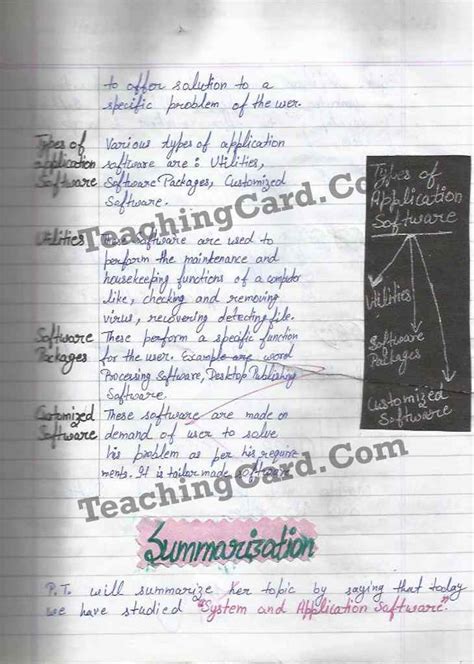 to offer solution to a
specific problem of the user.
Types of
application
Software
Various types of application
software are : Utilities,
Software Packages, Customized
Software.
Types of
Application
Software
Utilities
Software
Packages
Customized
Software
TeachingCard.Com
Utilities
These software are used to
perform the maintenance and
housekeeping functions of a computer
like, checking and removing
virus, recovering detecting file.
Software
Packages
These perform a specific function
for the user. Example are word
Processing Software, Desktop Publishing
Software.
Customized
Software
These software are made on
demand of user to solve
his problem as per his require
ments. It is tailor made software
TeachingCard.Com
Summarization
P.T. will summarize her topic by saying that today
we have studied "System and Application Software".